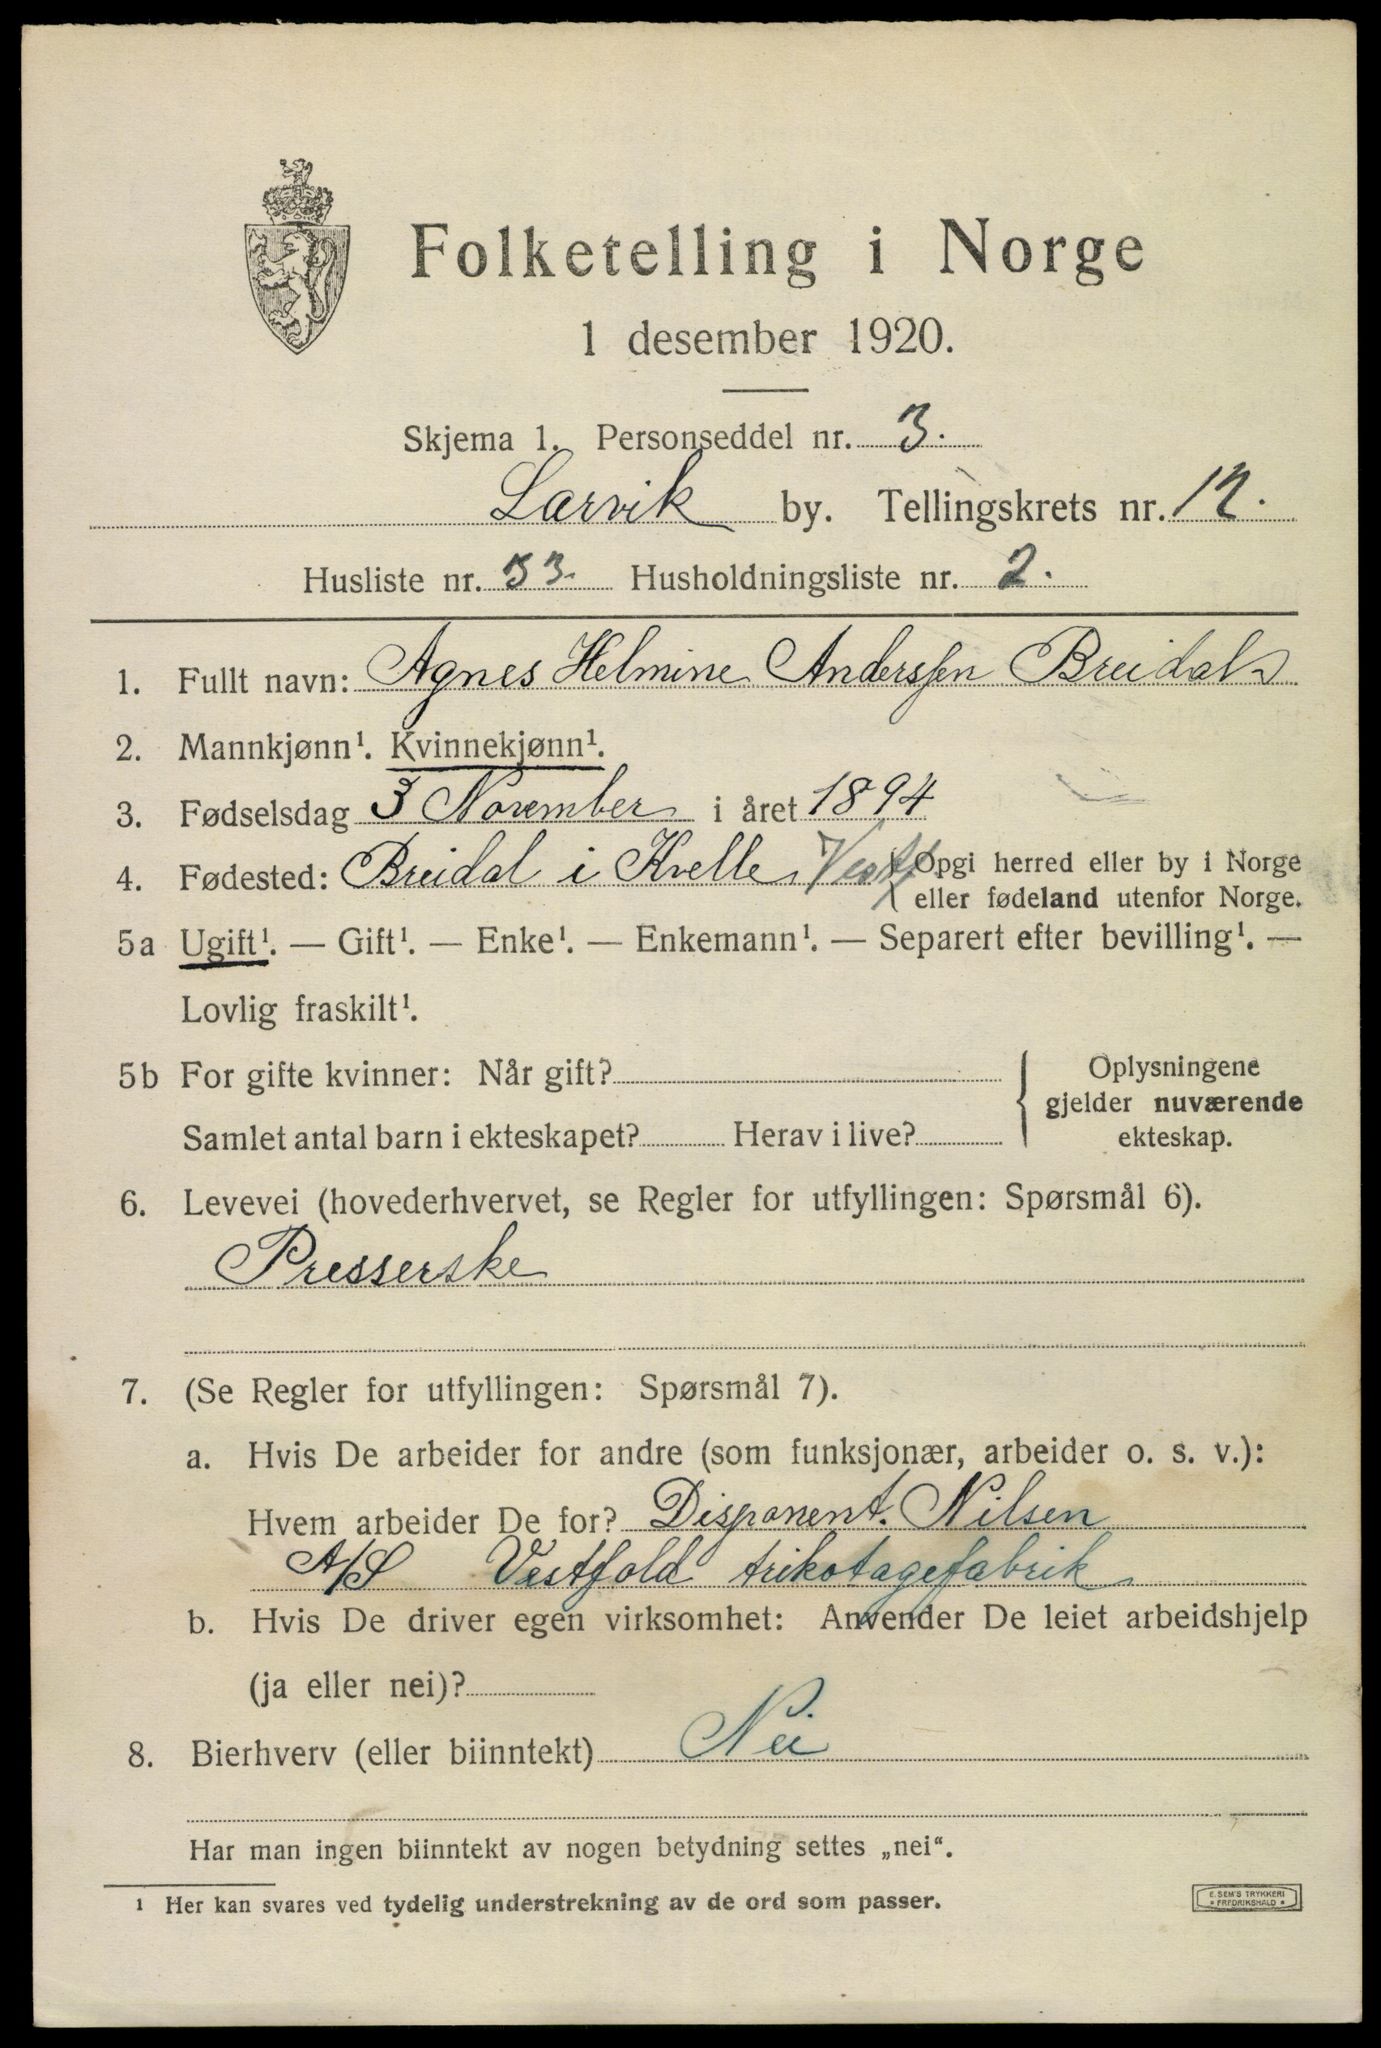 Folketelling i Norge
1 desember 1920.
Skjema 1. Personseddel nr. 3.
Larvik by. Tellingskrets nr. 12.
Husliste nr. 53. Husholdningsliste nr. 2.
1. Fullt navn: Agnes Helmine Anderssen Breidal
2. Mannkjønn¹. Kvinnekjønn¹.
3. Fødselsdag 3 November i året 1894
4. Fødested: Breidal i Kvelle Vestf. Opgi herred eller by i Norge
eller fødeland utenfor Norge.
5a Ugift¹. — Gift¹. — Enke¹. — Enkemann¹. — Separert efter bevilling¹. —
Lovlig fraskilt¹.
5b For gifte kvinner: Når gift? Oplysningene
gjelder nuværende
Samlet antal barn i ekteskapet? Herav i live? ekteskap.
6. Levevei (hovederhvervet, se Regler for utfyllingen: Spørsmål 6).
Presserske
7. (Se Regler for utfyllingen: Spørsmål 7).
a. Hvis De arbeider for andre (som funksjonær, arbeider o. s. v.):
Hvem arbeider De for? Disponent. Nilsen
A/S Vestfold trikotagefabrik
b. Hvis De driver egen virksomhet: Anvender De leiet arbeidshjelp
(ja eller nei)?
8. Bierhverv (eller biinntekt) Nei
Har man ingen biinntekt av nogen betydning settes „nei“.
¹ Her kan svares ved tydelig understrekning av de ord som passer.
E. SEM'S TRYKKERI
* FREDRIKSHALD *